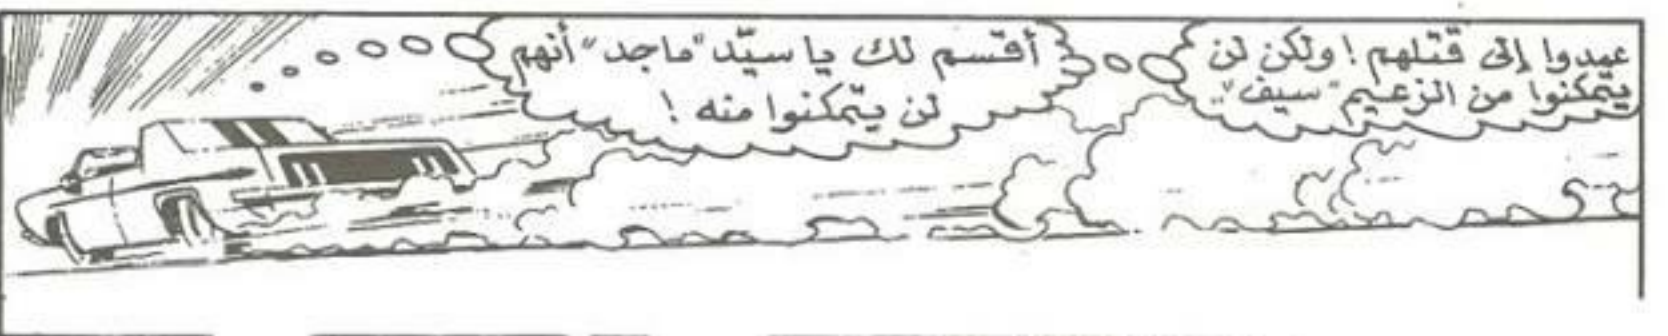 عمدوا إلى قتلهم! ولكن لن
يتمكنوا من الزعيم "سيف"..
أقسم لك يا سيّد "ماجد" أنهم
لن يتمكنوا منه!